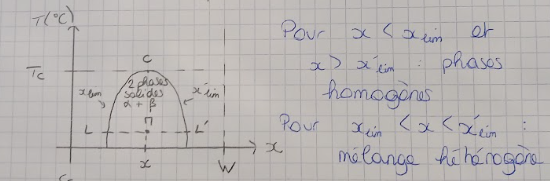 T(°C)
Tc
C
2 phases
solides
α + β
xlim
x'lim
M
L
L'
x
x
W
Pour x < xlim et
x > x'lim : phases
homogènes
Pour xlim < x < x'lim :
mélange héhérogène